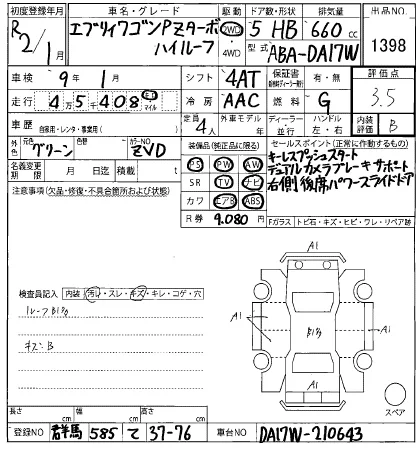 初度登録年月 車名・グレード 駆動 ドア数・形状 排気量 出品NO
R2/1月 エブリィワゴンPZターボ ハイルーフ 2WD 4WD 5 HB 660cc 1398
型式 ABA-DA17W
車検 9年1月 シフト 4AT 保証書 有・無 評価点
走行 4万5千408 km マイル 冷房 AAC 燃料 G 3.5
車歴 自家用・レンタ・事業用( ) 定員 4人 外車モデル年 ディーラー・並行 ハンドル 左・右 内装評価 B
外色 元色 グリーン 色替 カラーNO ZVD
装備品(純正品に限る) セールスポイント(正常に作動するもの)
名義変更期限 月 日迄 積載量 t
PS PW AW
SR TV ナビ
カワ エアB ABS
キーレスプッシュスタート
デュアルカメラブレーキサポート
右側後席パワースライドドア
注意事項(欠品・修復・不具合箇所および状態)
R券 9.080円
Fガラス トビ石・キズ・ヒビ・ワレ・リペア跡
検査員記入 内装 汚れ・スレ・キズ・キレ・コゲ・穴
ルーフB1为
キズB
A1
A1
B1为
A1
A1
スペア
長さ cm 幅 cm 高さ cm
登録NO 群馬 585 て 37-76 車台NO DA17W-210643